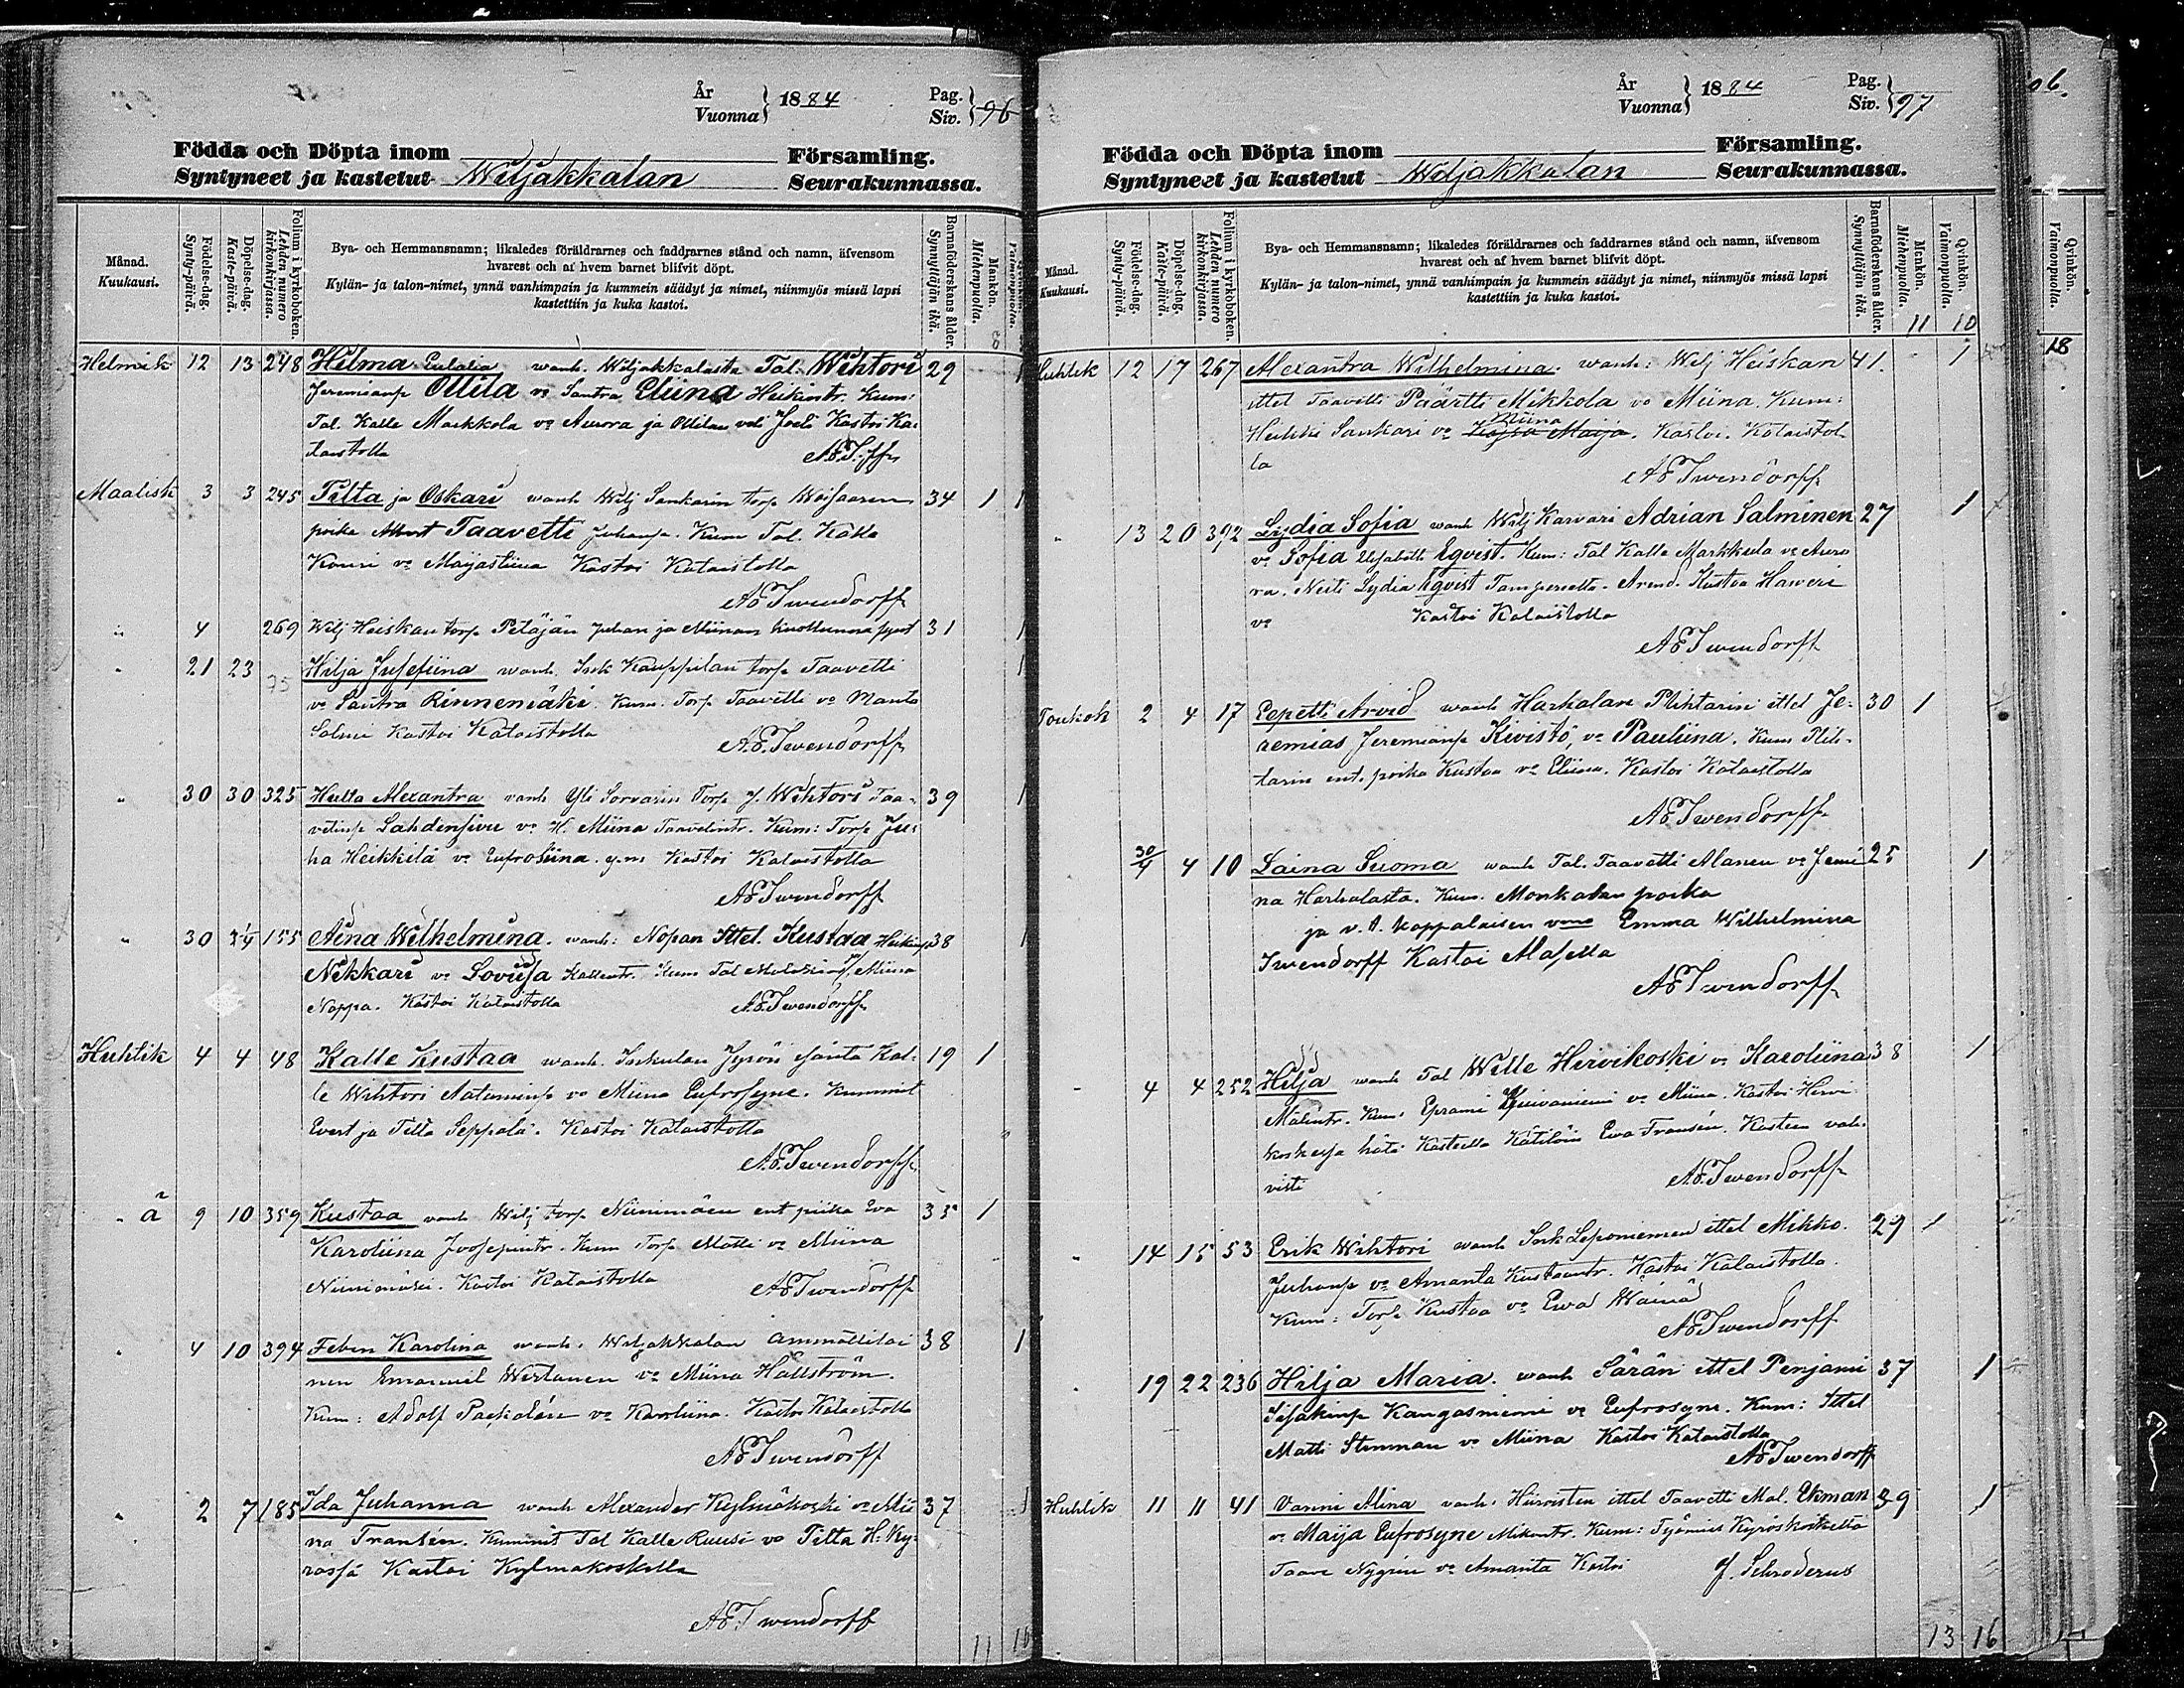 År
Vuonna } 1884
Pag.
Siv. } 96
Födda och Döpta inom Församling.
Syntyneet ja kastetut Wiljakkalan Seurakunnassa.
Månad. Kuukausi.
Födelse-dag. Synty-päivä.
Döpelse-dag. Kaste-päivä.
Folium i kyrkoboken. Lehden numero kirkonkirjassa.
Bya- och Hemmansnamn; likaledes föräldrarnes och faddrarnes stånd och namn, äfvensom
hvarest och af hvem barnet blifvit döpt.
Kylän- ja talon-nimet, ynnä vanhimpain ja kummein säädyt ja nimet, niinmyös missä lapsi
kastettiin ja kuka kastoi.
Barnaföderskans ålder. Synnyttäjän ikä.
Mankön. Miehenpuolia.
Vaimonpuolia.
Helmik 12 13 248 Hilma Eulalia wanh. Wiljakkalasta Tal. Wihtori 29 1
Jeremianp Ottila vo Santra Eliina Heikintr. Kum:
Tal. Kalle Markkola vo Aurora ja Ottilan veli Joeli Kastoi Ka-
taistolla
Maalisk 3 3 245 Tilta ja Oskari wanh Wilj Sankarin torp 34 1 1
poika Taavetti Juhanp. Kum Tal. Kalle
Kouri vo Maijastiina Kastoi Kataistolla
AE Iwendorff
" 4 269 Wilj Heiskan torp Petäjän Juhan ja Miinan kuolluna synt 31 1
" 21 23 75 Hilja Josefiina wanh. Kauppilan torp Taavetti 1
vo Santra Rinnemäki. Kum. Torp Taavetti vo Manta
Salmi Kastoi Kataistolla
A.E. Iwendorff
" 30 30 325 Hulta Alexantra vanh Yli Sorvarin Torp J. Wihtori Taa- 39 1
vetinp Lahdensivu vo H. Miina Taavetintr. Kum: Torp Ju-
ha Heikkilä vo Eufrosiina y.m Kastoi Kataistolla
AE Iwendorff
" 30 155 Aina Wilhelmina. wanh: Nopan Ittel. Kustaa Heikinp 38 1
Nikkari vo Lovisa Kallentr. Kum Tal Miina
Noppa. Kastoi Kataistolla
A.E. Iwendorff
Huhtik 4 4 48 Kalle Kustaa wanh. Inkulan Jyrön isäntä Kal- 19 1
le Wihtori Aataminp vo Miina Eufrosyne. Kummit
Evert ja Tilta Seppälä. Kastoi Kataistolla
A.E. Iwendorff
" 9 10 359 Kustaa vanh Wilj torp Niinimäen ent piika Eva 35 1
Karoliina Joosepintr. Kum Torp Matti vo Miina
Niinimäki. Kastoi Kataistolla
AE Iwendorff
" 4 10 394 Feben Karolina wanh. Wiljakkalan ammättilai 38 1
nen Emanuel Wirtanen vo Miina Hällström.
Kum: Adolf Packalén vo Karoliina. Kastoi Kataistolla
AE Iwendorff
" 2 7 185 Ida Juhanna wanh Alexander Kylmäkoski vo Mii- 37 1
na Fransén. Kummit Tal Kalle Ruusi vo Tilta H: Ky-
rössä Kastoi Kylmäkoskella
AE Iwendorff
11 16
År
Vuonna } 1884
Pag.
Siv. } 97
Födda och Döpta inom Församling.
Syntyneet ja kastetut Wiljakkalan Seurakunnassa.
Månad. Kuukausi.
Födelse-dag. Synty-päivä.
Döpelse-dag. Kaste-päivä.
Folium i kyrkoboken. Lehden numero kirkonkirjassa.
Bya- och Hemmansnamn; likaledes föräldrarnes och faddrarnes stånd och namn, äfvensom
hvarest och af hvem barnet blifvit döpt.
Kylän- ja talon-nimet, ynnä vanhimpain ja kummein säädyt ja nimet, niinmyös missä lapsi
kastettiin ja kuka kastoi.
Barnaföderskans ålder. Synnyttäjän ikä.
Mankön. Miehenpuolia.
Qvinkön. Vaimonpuolia.
11 10
Huhtik 12 17 267 Alexantra Wilhelmina. wanh: Wilj Heiskan 41. 1
ittel Taavetti Päärtti Mikkola vo Miina. Kum:
Miina
Heikki Sankari vo Maija. Kastoi. Kataistol-
la
AE Iwendorff
" 13 20 392 Lydia Sofia wanh Wilj Karvari Adrian Salminen 27 1
vo Sofia Elisabeth Eqvist. Kum: Tal Kalle Markkula vo Auro
ra. Neiti Lydia Eqvist Tampereelta. Arend. Kustaa Haveri
vo Kastoi Kataistolla
AE Iwendorff
Toukok 2 4 17 Eepetti Arvid wanh Harhalan Plihtarin ittel Je- 30 1
remias Jeremianp Kivistö, vo Pauliina. Kum Plih-
tarin ent. poika Kustaa vo Eliina. Kastoi Kataistolla
AE Iwendorff
30/4 4 10 Laina Suoma wanh Tal. Taavetti Alanen vo Jemi 25 1
na Harhalasta. Kum. poika
ja v. A. Kappalaisen Emma Wilhelmina
Iwendorff Kastoi
AE Iwendorff
" 4 4 252 Hilja wanh Tal Wille Hirvikoski vo Karoliina 38 1
Kum. Eprami vo Miina. Kastoi Hirvi
koskessa hätä Kasteella Kätilöin Eva Fransén. Kasteen vah-
visti
A.E. Iwendorff
" 14 15 53 Erik Wihtori wanh Leponiemen ittel Mikko. 29 1
Juhanp vo Amanta Kustaantr. Kastoi Kataistolla.
Kum: Torp Kustaa vo Eva Wainio
AE Iwendorff
" 19 22 236 Hilja Maria. wanh Särän ittel Penjami 37 1
Iisakinp Kangasniemi vo Eufrosyne. Kum: Ittel
Matti Stenman vo Miina Kastoi Kataistolla
AE Iwendorff
Huhtik 11 11 41 Vanni Alina vanh. Hiirvisten ittel Taavetti Mal. Ekman 39 1
vo Maija Eufrosyne Mikontr. Kum: Työmies Kyröskoskelta
Taave Nygrén vo Amanta Kastoi
J. Schroderus
13 16
106.
Qvinkön. Vaimonpuolia.
18